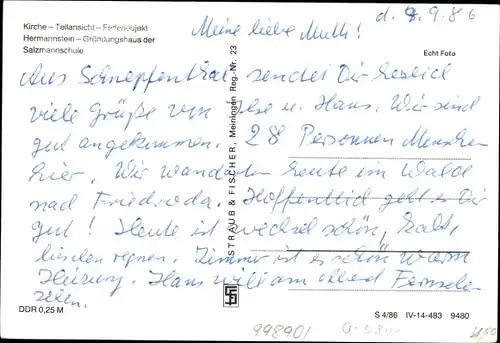 Kirche – Teilansicht – Ferienobjekt
Hermannstein – Gründungshaus der
Salzmannschule
d. 9.9.86
Meine liebe Mutti!
Echt Foto
Aus Schnepfenthal sendet Dir herzlich
viele Grüße von Ilse u. Hans. Wir sind
gut angekommen. 28 Personnen Menschen
hier. Wir wanderten heute im Wald
nach Friedroda. Hoffentlich geht es Dir
gut! Heute ist wechsel schön, kalt,
bischen regnen. Zimmer ist es schön warm
Heizung. Hans will am Abend Fernseh
sehen.
STRAUB & FISCHER, Meiningen Reg.-Nr. 23
DDR 0,25 M
S 4/86 IV-14-483 9480
998901
4,50